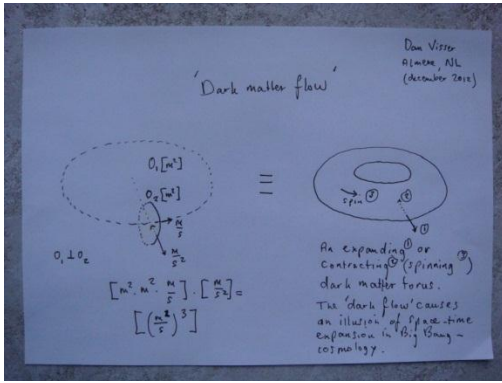 Dan Visser
Almere, NL
(december 2012)
'Dark matter flow'
O₁[m²]
O₂[m²]
m/s
m/s²
O₁ ⊥ O₂
[m² · m² · m/s] · [m/s²] =
[(m²/s)³]
≡
spin → ③
②
①
An expanding ① or
Contracting ② (spinning ③)
dark matter torus.
The 'dark flow' causes
an illusion of space-time
expansion in Big Bang-
cosmology.